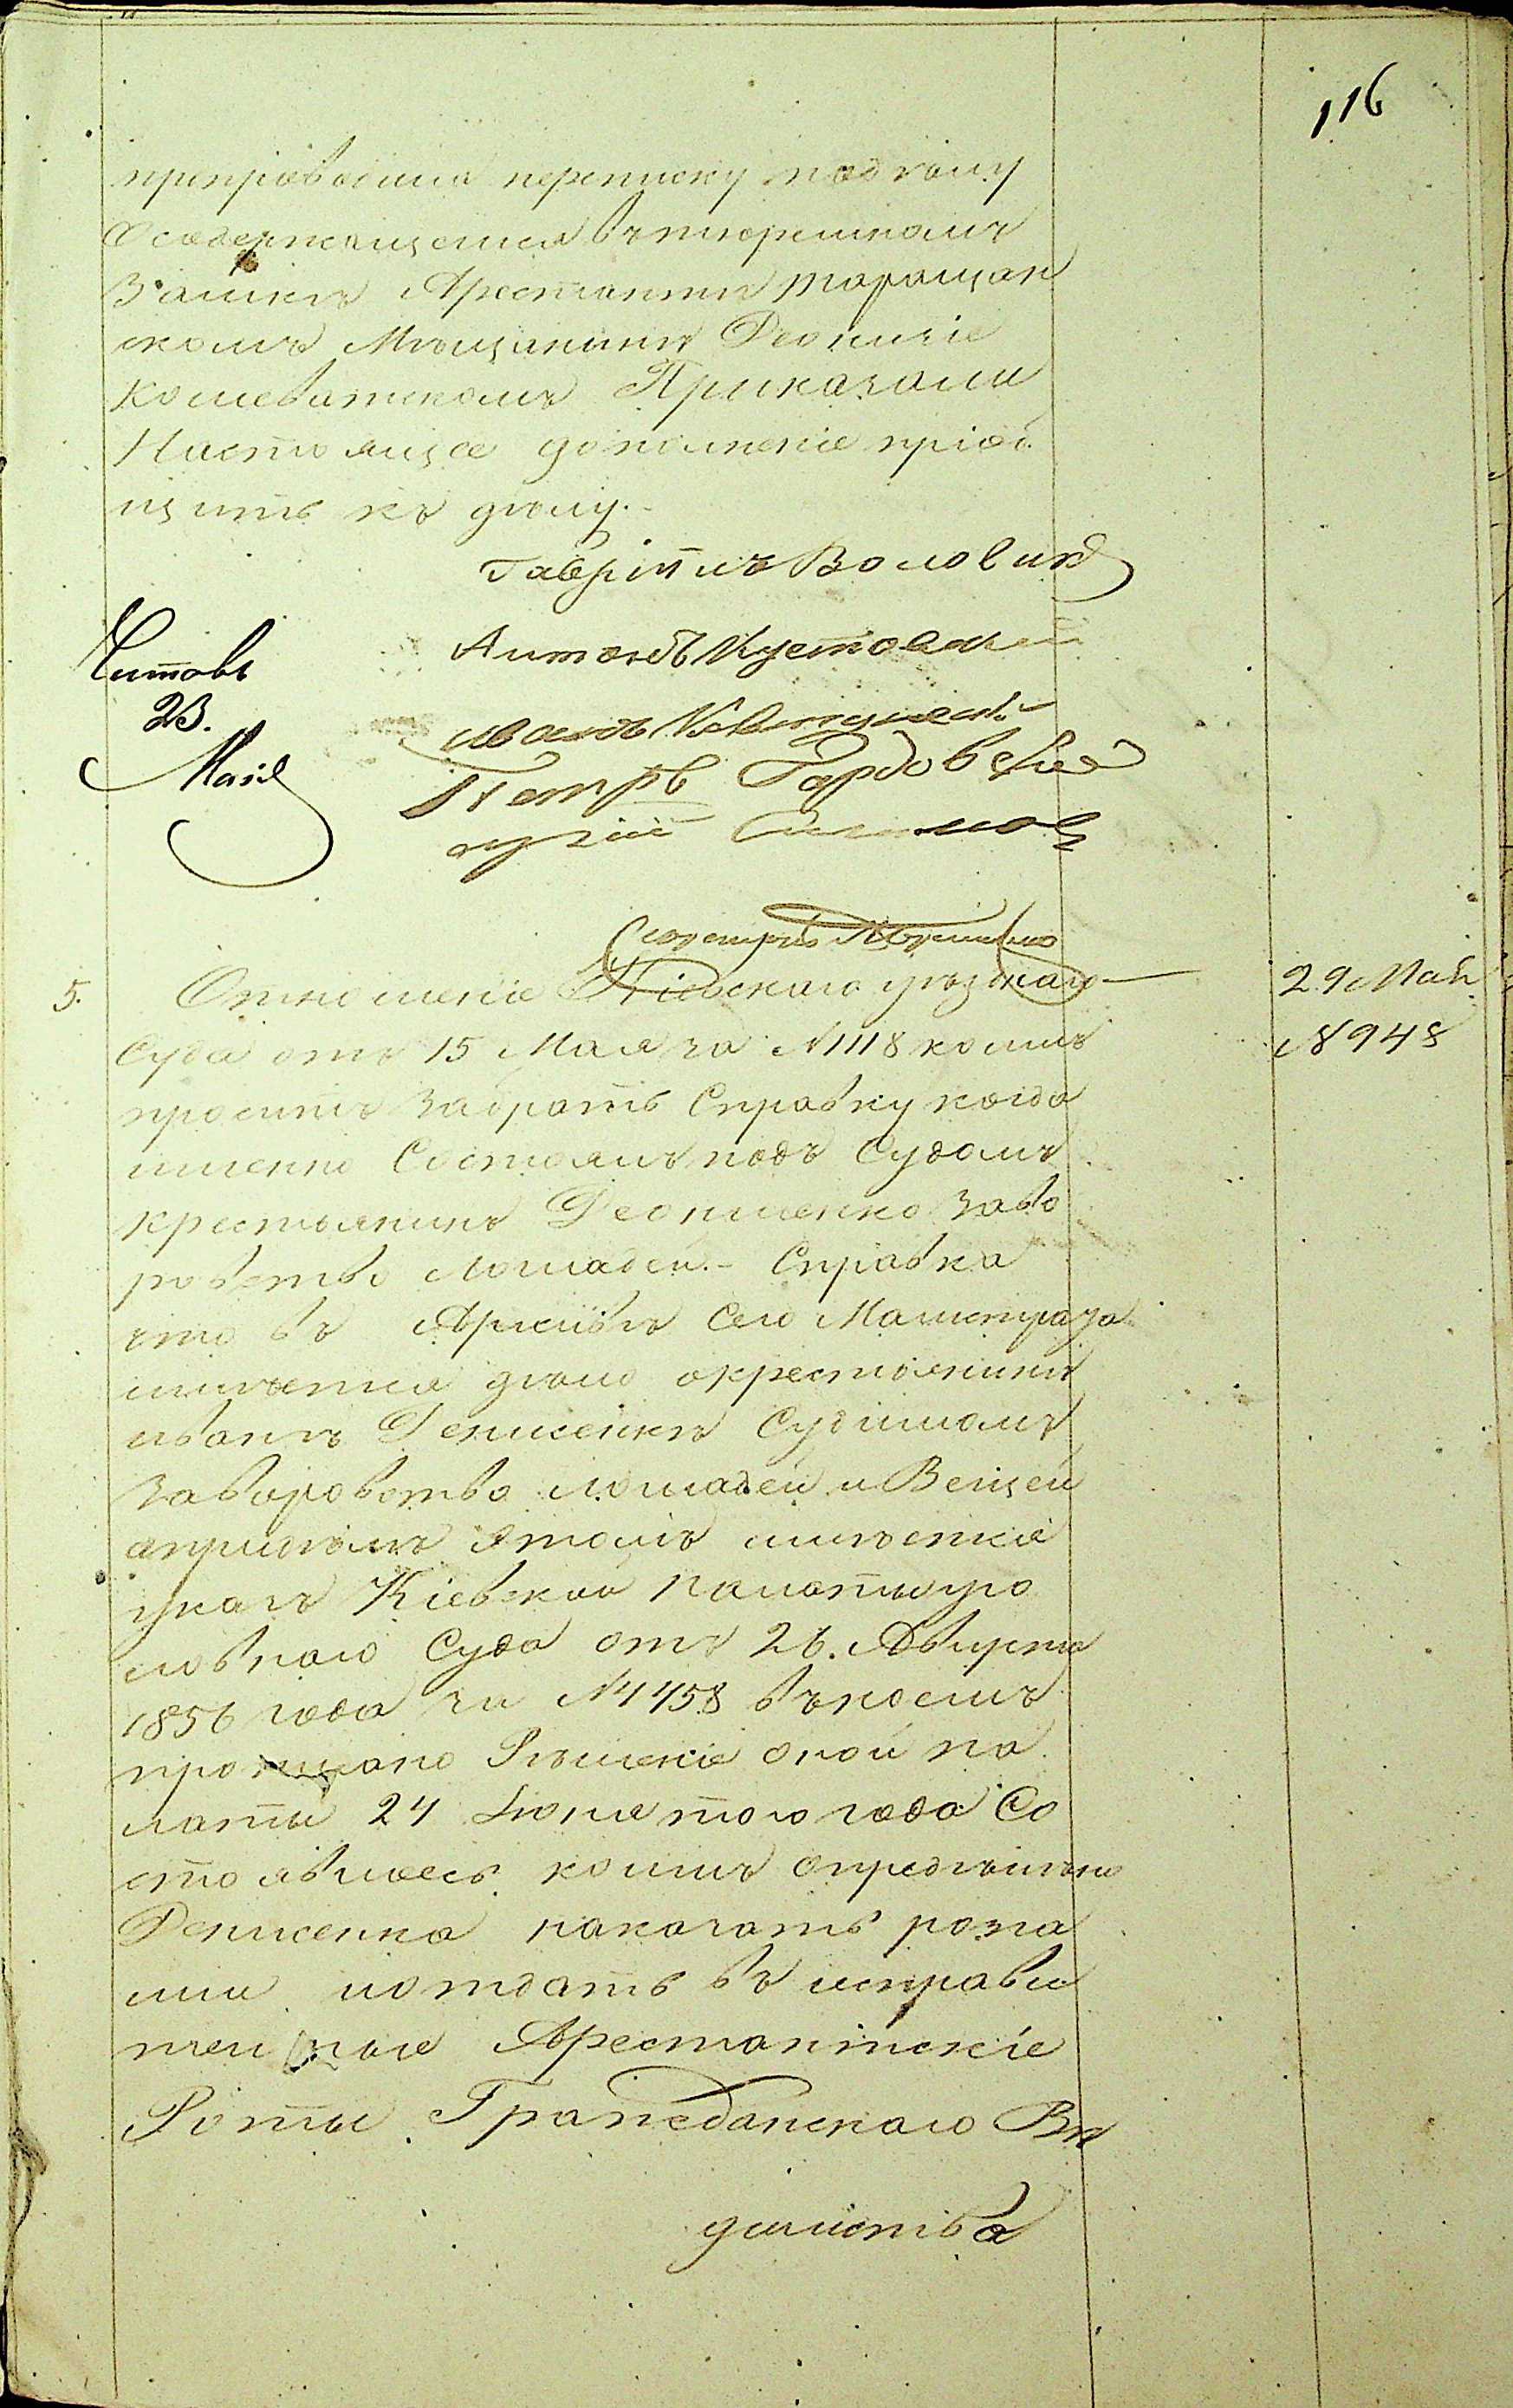 116
препровоειлъ переписку по дѣлу
Осодержащемся въ тюремномъ
Замкѣ Арестантѣ Таращан
скомъ Мѣщанинѣ Деонизіе
Кошеватскомъ Приказали
Настоящее дополненіе пріоб
щить къ дѣлу.
Гавріилъ Воловик
Антонъ Кустовски
Иванъ
Петръ Гордовскій
Читовъ
23.
Мая
Секретарь
5.
Отношеніе Кіевскаго уѣзднаго
29 Мая
№ 948
Суда отъ 15 Мая за № 1118 коимъ
проситъ забрать Справку когда
именно Состоялъ подъ Судомъ
крестьянинъ Деонисенко Заво
ровство Лошадей. - Справка
что въ Архивѣ Сего Магистрата
имѣется дѣло окрестьянинѣ
иванѣ Денисенкѣ Судимомъ
Заворовство лошадей и Вещей
априделѣ этомъ имѣеткіе
указъ Кіевской Палаты уго
ловнаго Суда отъ 26. Августа
1856 года за № 4458 въ коемъ
прописано Рѣшеніе оной па
латы 24 Іюня того года Со
стоявшеесь коимъ опредѣлено
Денисенка наказать розга
ми иотдать въ исправи
тельные Арестантскіе
Роты Гражданскаго Вѣ
домства